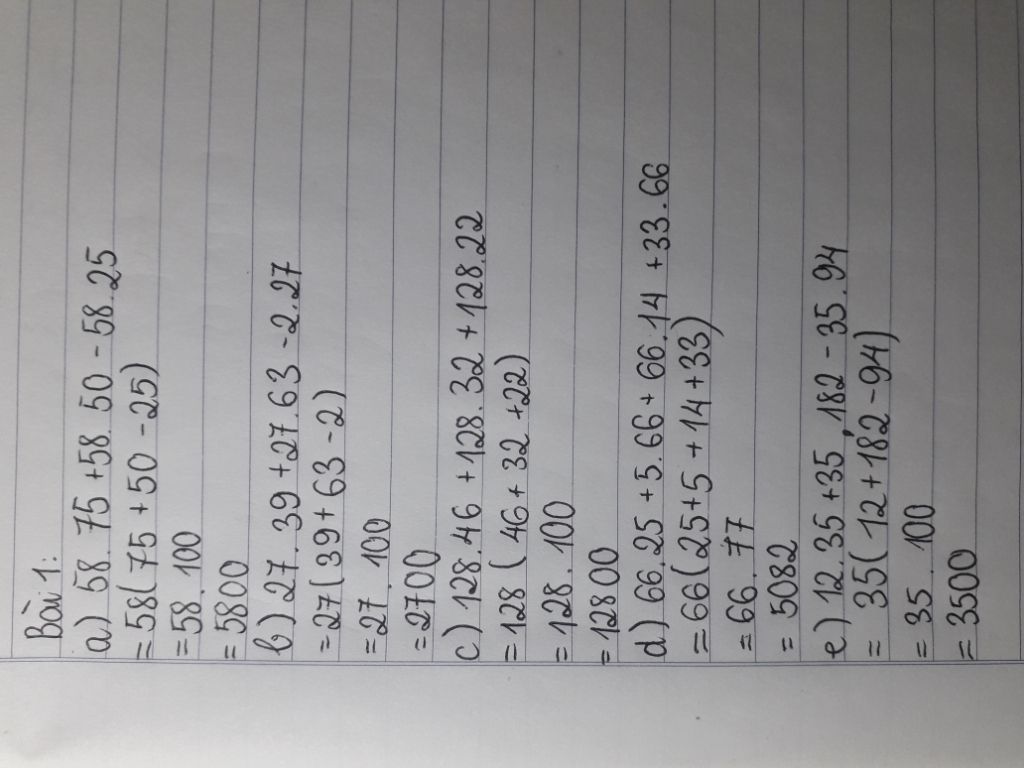 Bài 1:
a) 58.75 +58.50 - 58.25
= 58(75 +50 -25)
= 58.100
= 5800
b) 27.39 +27.63 -2.27
= 27(39+63-2)
= 27.100
= 2700
c) 128.46 +128.32 +128.22
= 128(46+32+22)
= 128.100
= 12800
d) 66.25 +5.66+ 66.14 +33.66
= 66(25+5+14+33)
= 66.77
= 5082
e) 12.35 +35.182 - 35.94
= 35(12+182-94)
= 35.100
= 3500